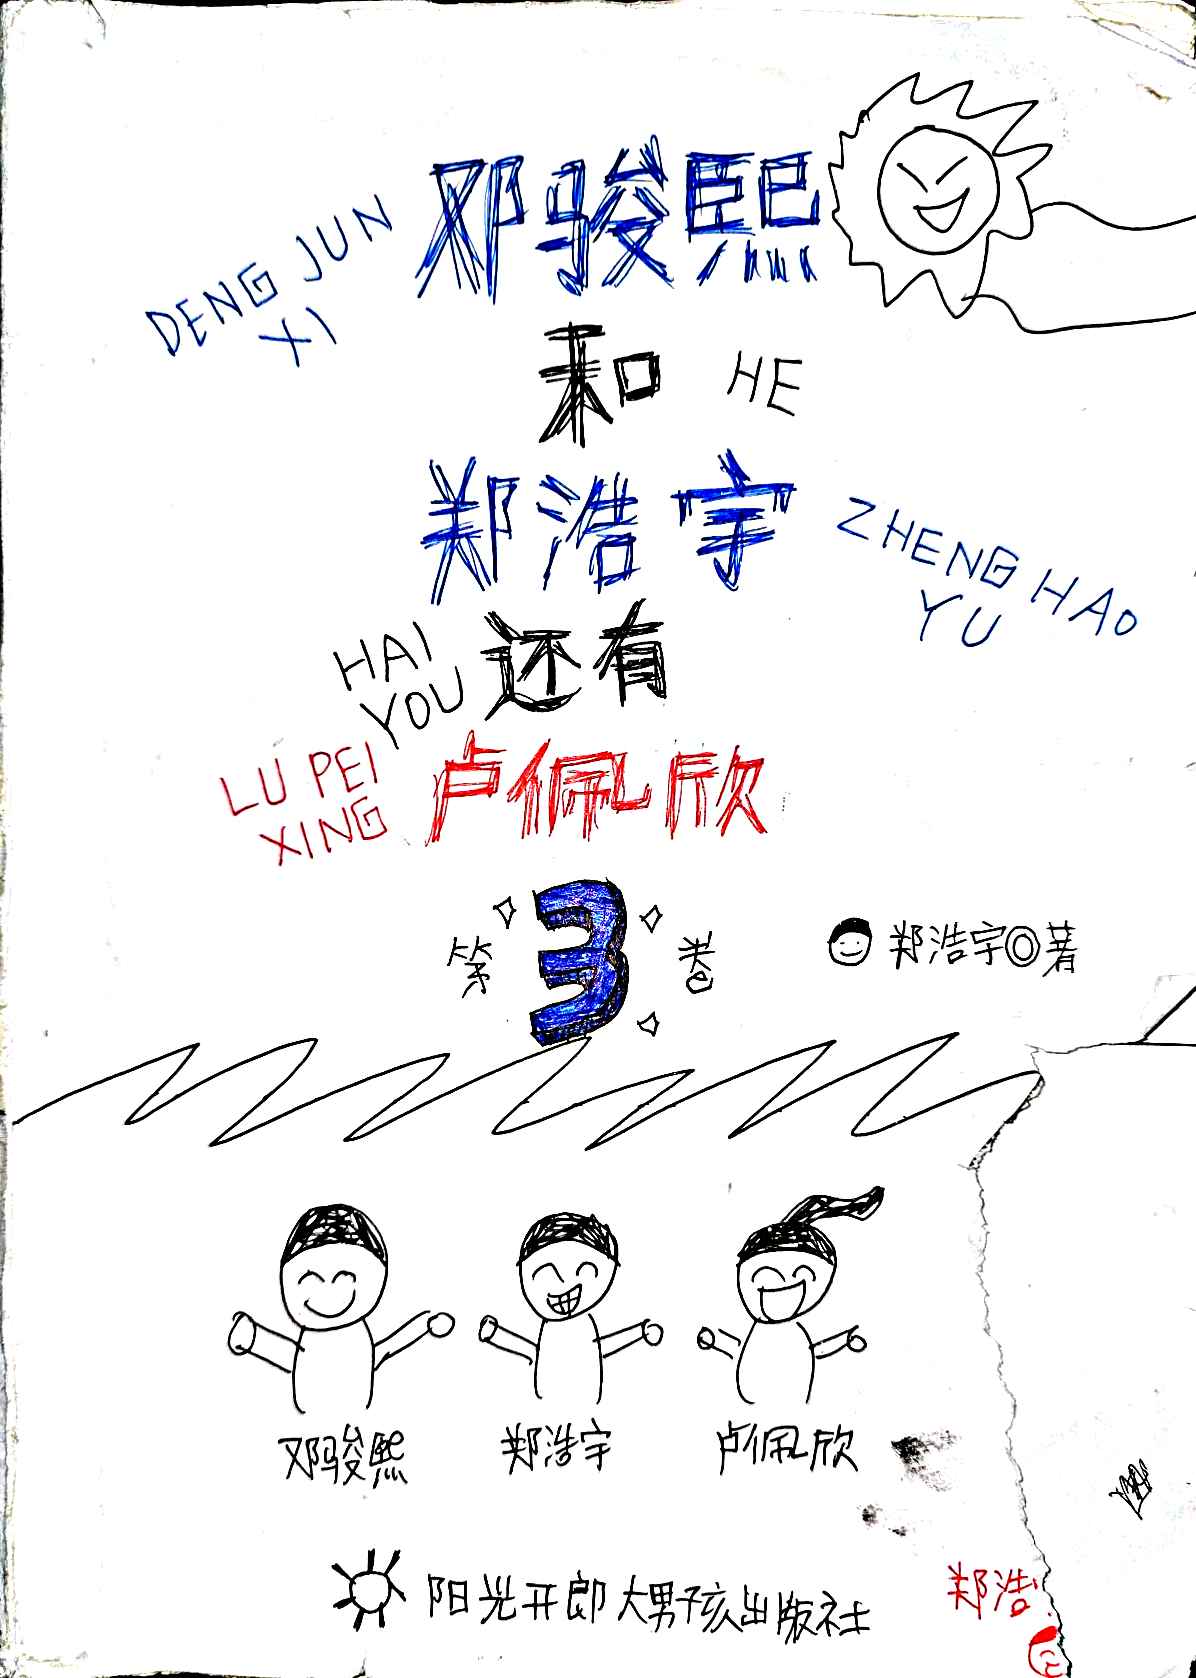 邓骏熙
DENG JUN
XI
和 HE
郑浩宇
ZHENG HAO
YU
HAI
YOU
还有
LU PEI
XING
卢佩欣
第3卷
郑浩宇◎著
邓骏熙 郑浩宇 卢佩欣
阳光开郎大男孩出版社
郑浩